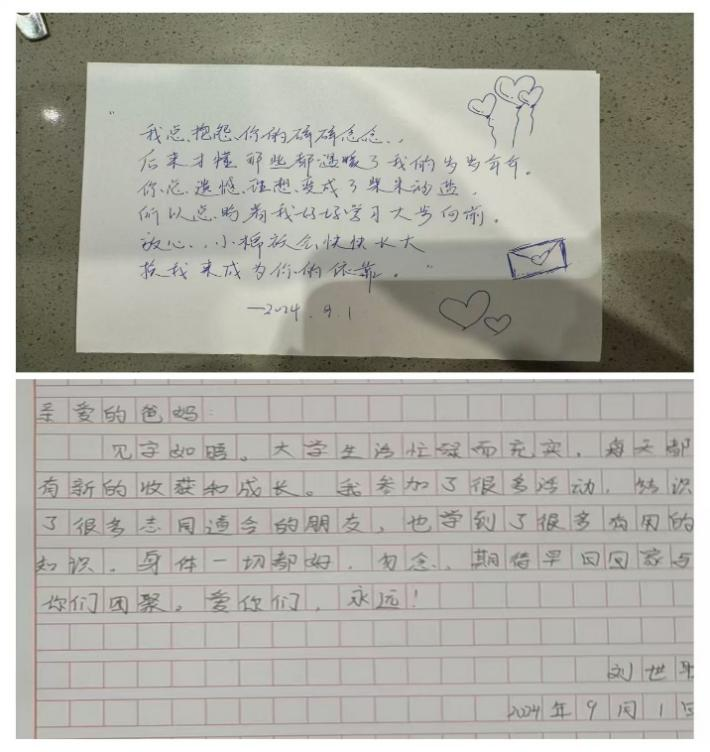 "
我总抱怨你的碎碎念念,,
后来才懂那些都温暖了我的岁岁年年。
你总遗憾理想变成了柴米油盐,
所以总盼着我好好学习大步向前。
放心,,小棉袄会快快长大
换我来成为你的依靠。"
—2024.9.1
亲爱的爸妈:
见字如晤。大学生活忙碌而充实,每天都
有新的收获和成长。我参加了很多活动,结识
了很多志同道合的朋友,也学到了很多有用的
知识。身体一切都好,勿念。期待早日回家与
你们团聚。爱你们,永远!
刘世
2024年9月1日